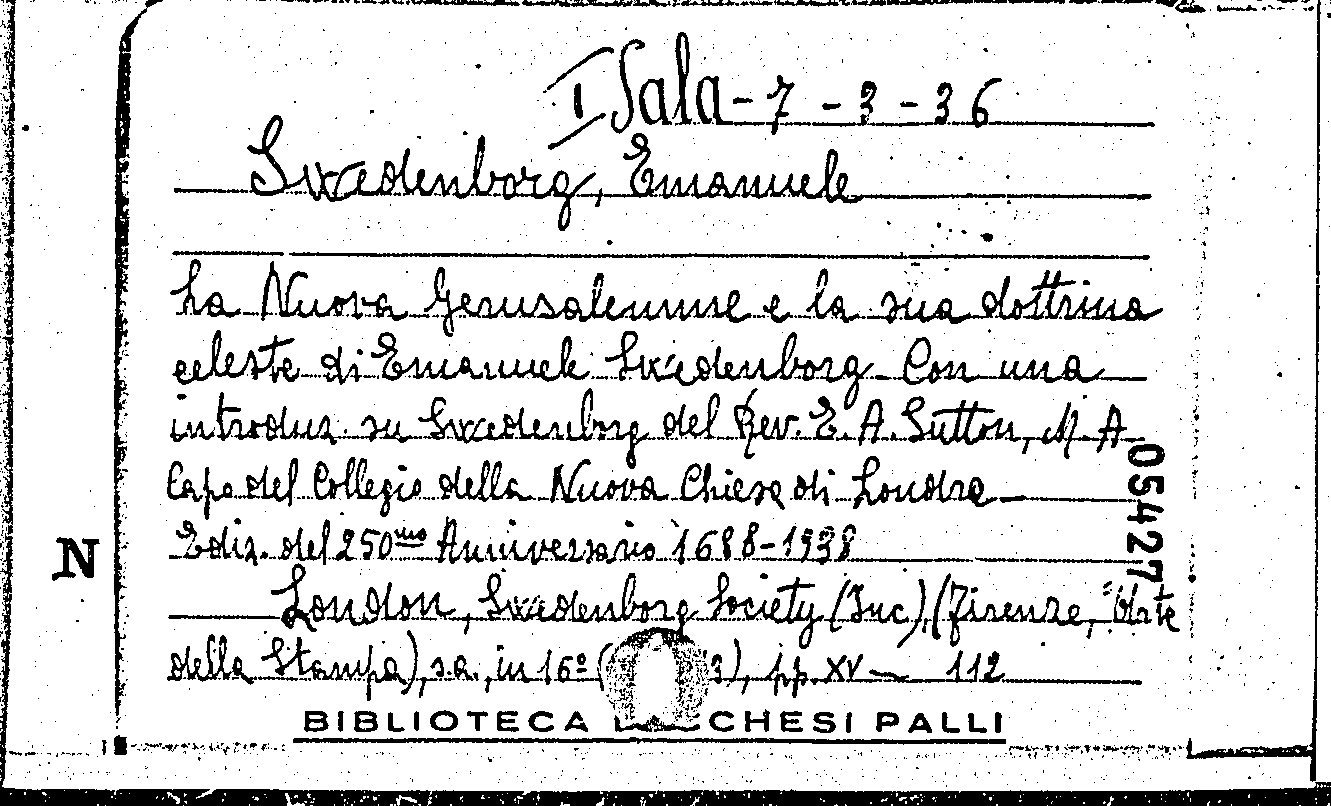 I Sala - 7 - 3 - 36
Swedenborg, Emanuele
La Nuova Gerusalemme e la sua dottrina
celeste di Emanuele Swedenborg. Con una
introduz. su Swedenborg del Rev. E. A. Sutton, M. A.
Capo del Collegio della Nuova Chiesa di Londra
Ediz. del 250mo Anniversario 1688-1938
London, Swedenborg Society (Inc), (Firenze, "Arte
della Stampa), s.a., in 16º ( 3), pp. XV — 112
BIBLIOTECA CHESI PALLI
N
05427